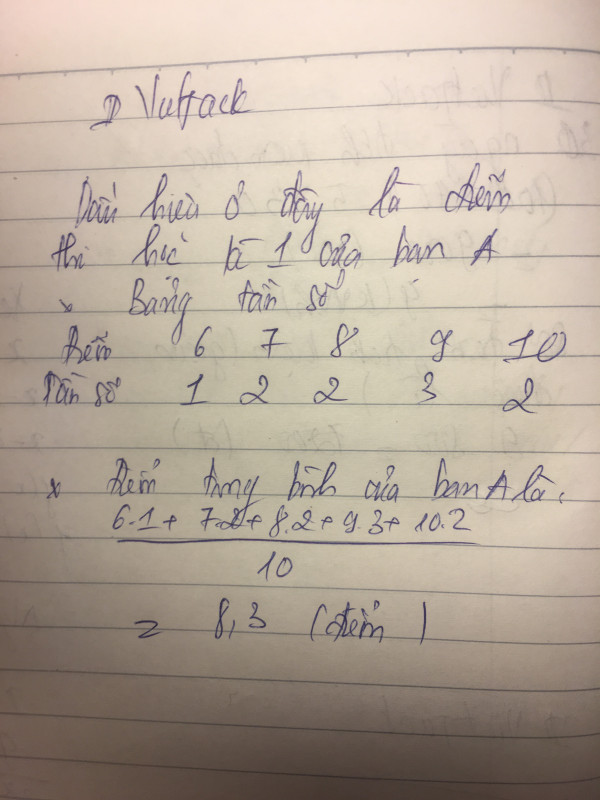 Vuffack
Dấu hiệu ở đây là điểm
thi học kì 1 của bạn A
× Bảng tần số
Điểm 6 7 8 9 10
Tần số 1 2 2 3 2
× Điểm trung bình của bạn A là:
6.1 + 7.2 + 8.2 + 9.3 + 10.2
10
= 8,3 (điểm)